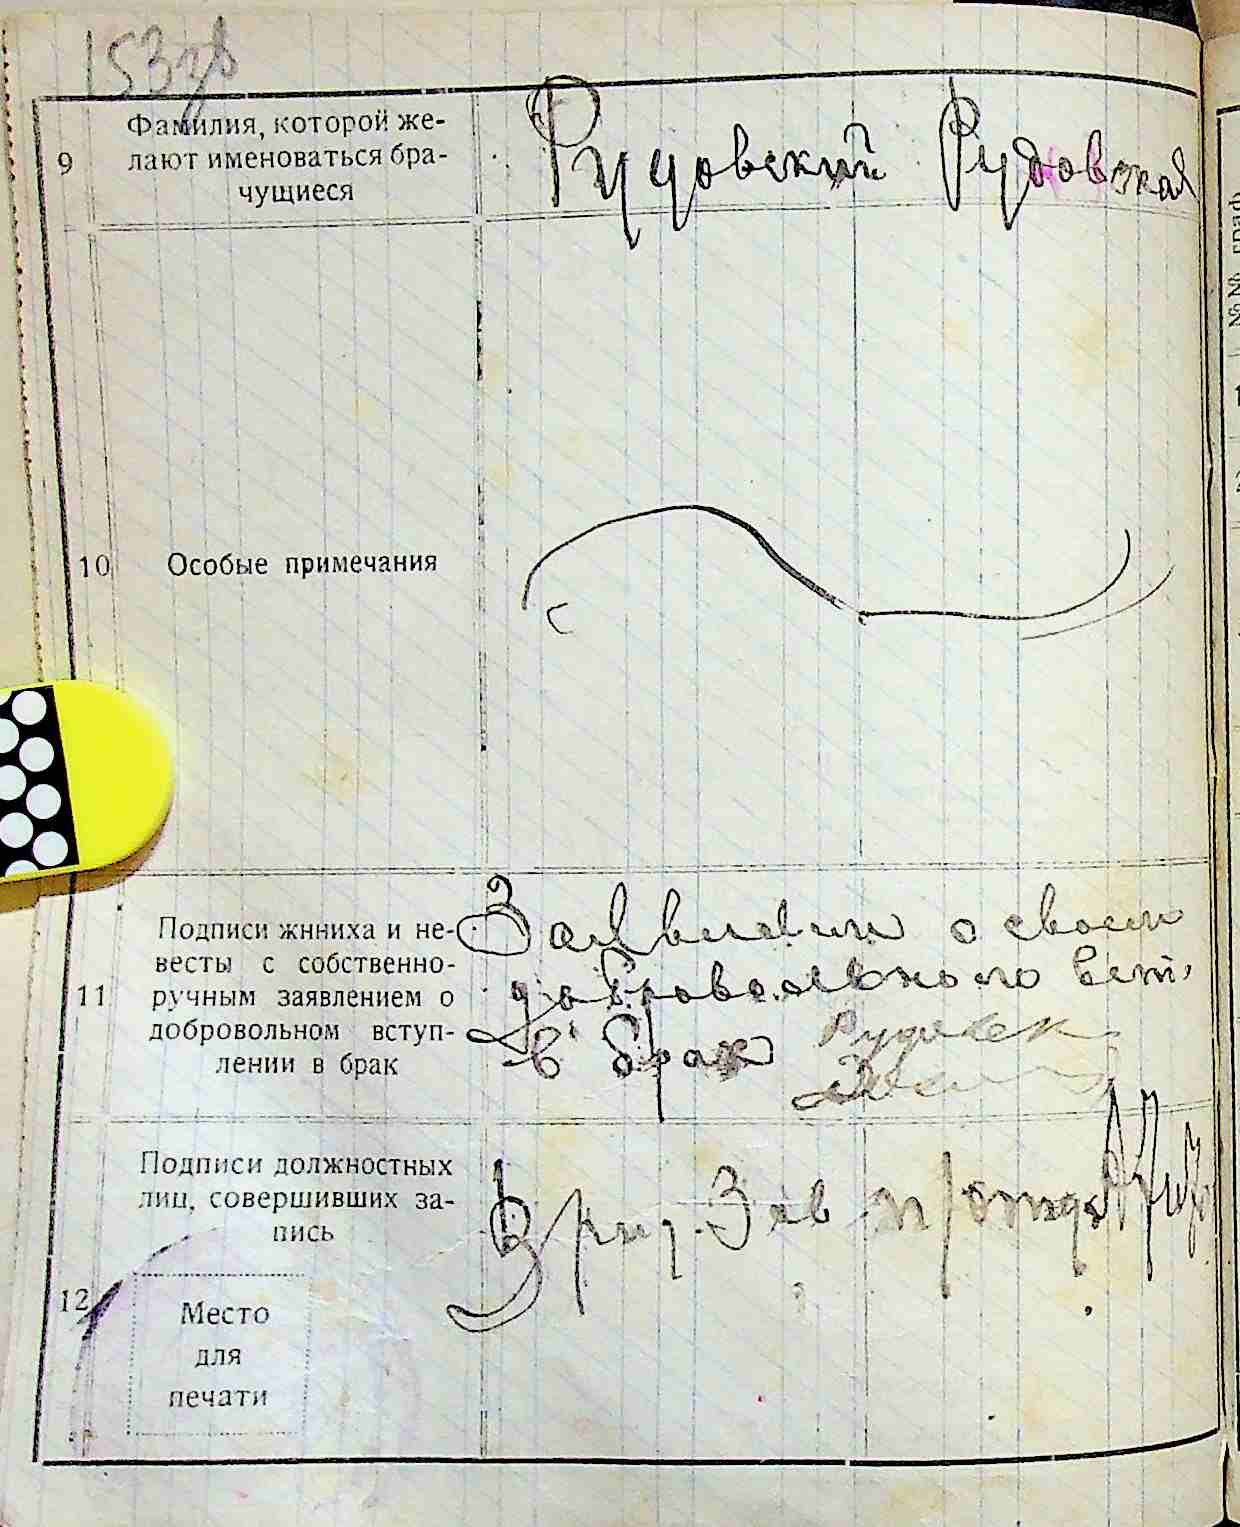 9
Фамилия, которой же-
лают именоваться бра-
чущиеся
Рудовский Рудовская
10 Особые примечания
11
Подписи жнниха и не-
весты с собственно-
ручным заявлением о
добровольном вступ-
лении в брак
Заявляем о своем
добровольном вст,
в брак
12
Подписи должностных
лиц, совершивших за-
пись
Зав
Место
для
печати
№№ граф